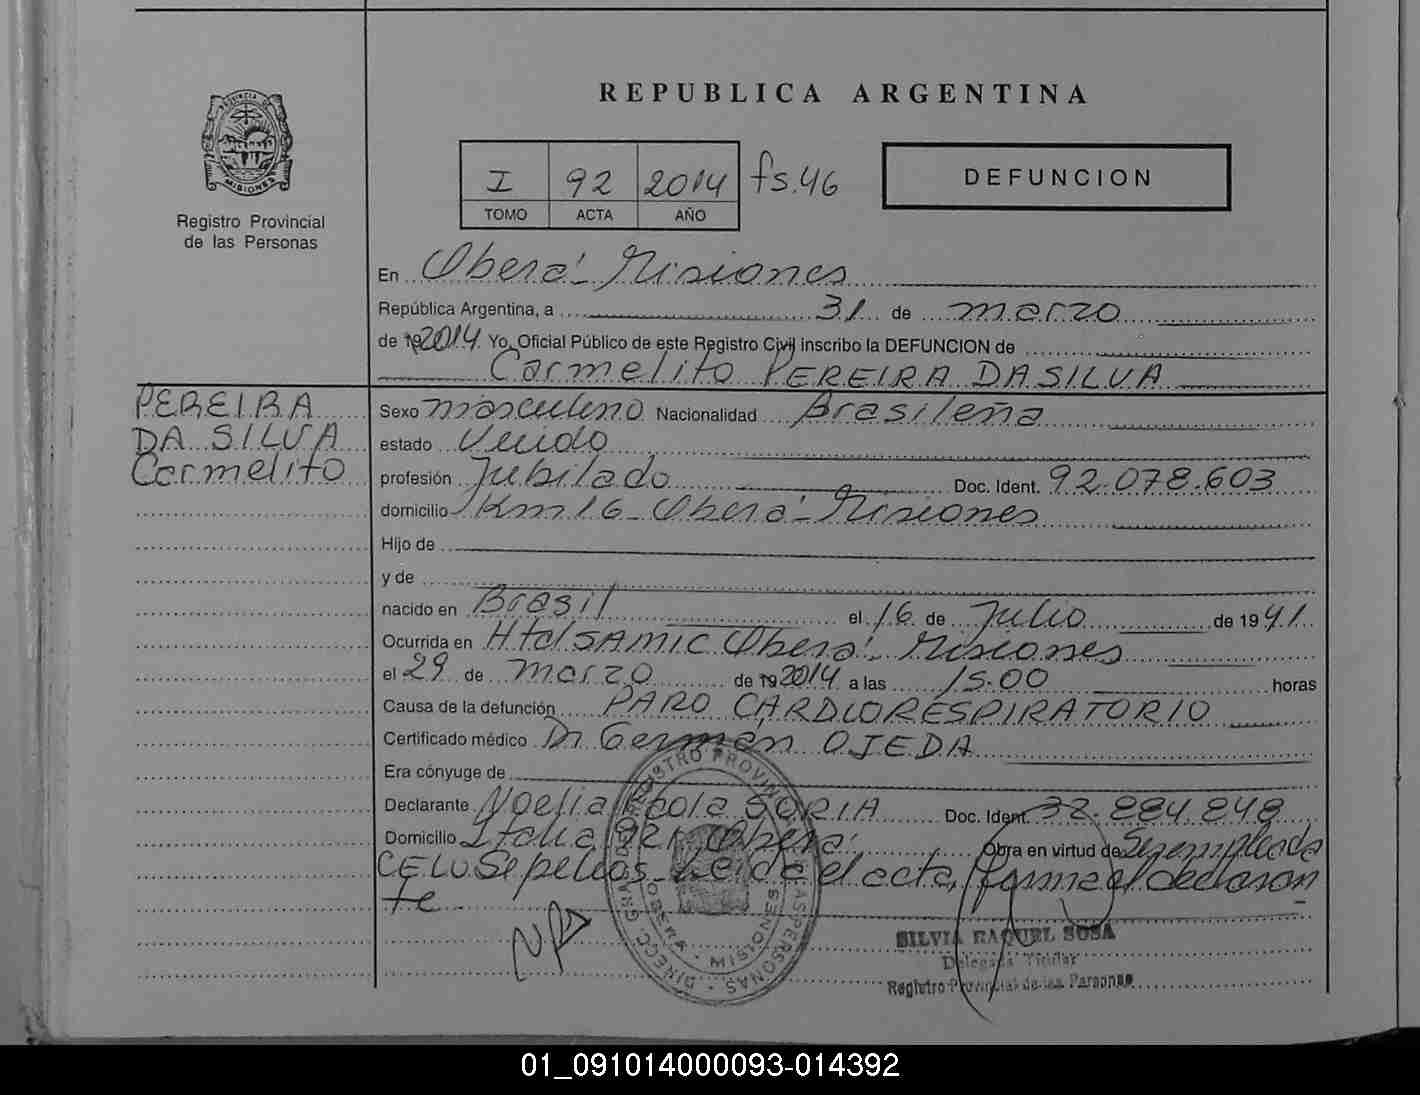 PROVINCIA DE MISIONES
Registro Provincial
de las Personas
REPUBLICA ARGENTINA
I 92 2014 fs.46
TOMO ACTA AÑO
DEFUNCION
En Oberá - Misiones
República Argentina, a 31 de marzo
de 19 2014 Yo, Oficial Público de este Registro Civil inscribo la DEFUNCION de
Carmelito PEREIRA DA SILVA
PEREIRA
DA SILVA
Carmelito
Sexo masculino Nacionalidad Brasileña
estado Viudo
profesión Jubilado Doc. Ident. 92.078.603
domicilio Km 16 - Oberá - Misiones
Hijo de
y de
nacido en Brasil el 16 de Julio de 1941
Ocurrida en Htal SAMIC Oberá - Misiones
el 29 de marzo de 19 2014 a las 15.00 horas
Causa de la defunción PARO CARDIORESPIRATORIO
Certificado médico Dr Germán OJEDA
Era cónyuge de
Declarante Noelia SORIA Doc. Ident. 32.884.848
Domicilio Italia Oberá Obra en virtud de Ser empleada
CELO Sepelios - Leida el acta, firma el declaran
te
DIRECC. GRAL. DEL REGISTRO PROVINCIAL DE LAS PERSONAS
OBERA - MISIONES
SILVIA RAQUEL SOSA
Delegada Titular
Registro Provincial de las Personas
01_091014000093-014392